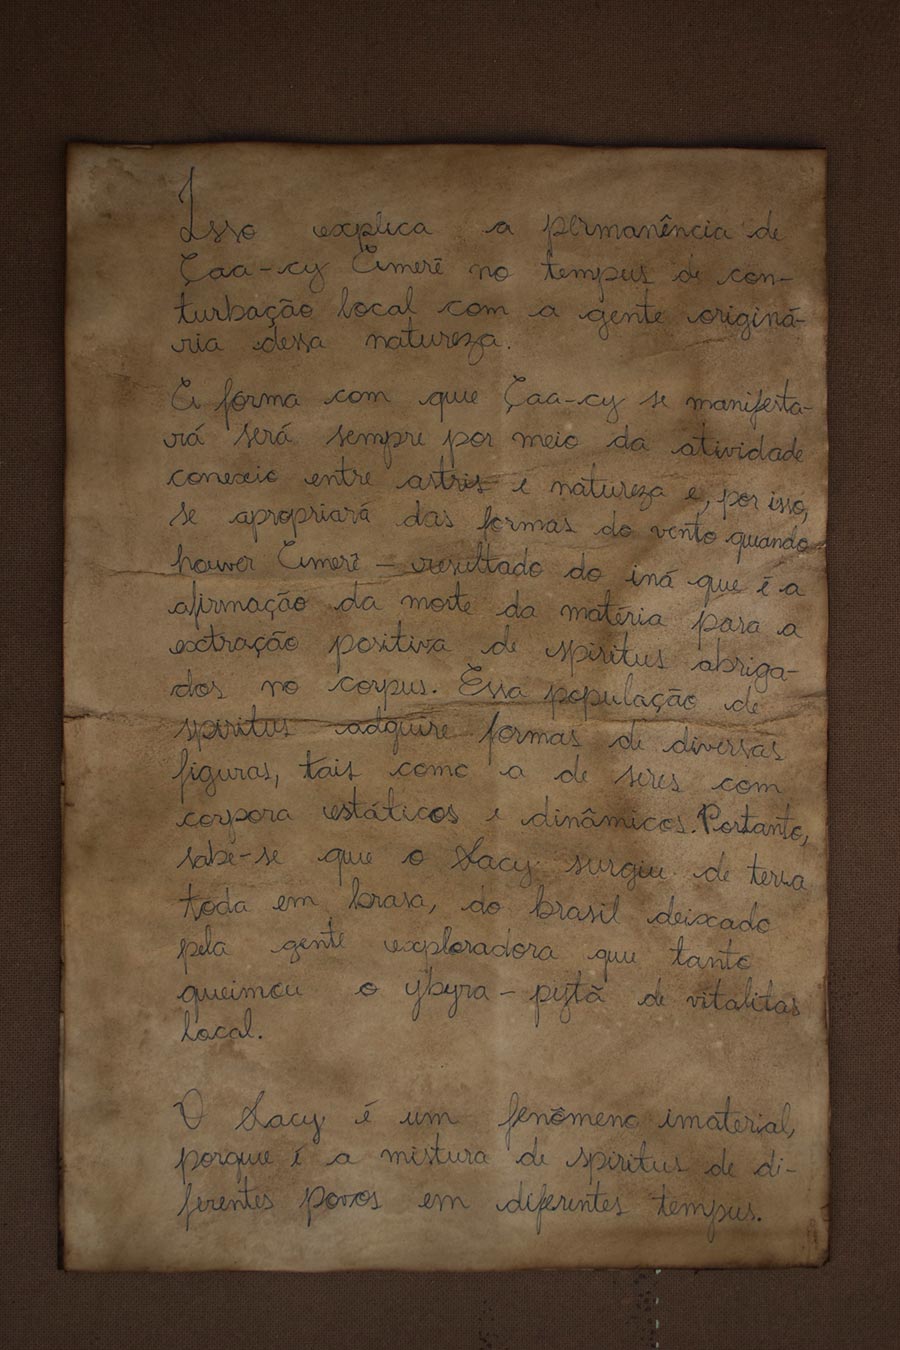 Isso explica a permanência de
Çaa-cy Ẽimerẽ no tempus de con-
turbação local com a gente originá-
ria dessa natureza.
A forma com que Çaa-cy se manifesta-
rá será sempre por meio da atividade
conexio entre astris e natureza e, por isso,
se apropriará das formas do vento quando
houver Ẽimerẽ – resultado do iná que é a
afirmação da morte da matéria para a
extração positiva de spiritus abriga-
dos no corpus. Essa população de
spiritus adquire formas de diversas
figuras, tais como a de seres com
corpora estáticos e dinâmicos. Portanto,
sabe-se que o Sacy surgiu de terra
toda em brasa, do brasil deixado
pela gente exploradora que tanto
queimou o ybyra-pytã de vitalitas
local.
O Sacy é um fenômeno imaterial,
porque é a mistura de spiritus de di-
ferentes povos em diferentes tempus.